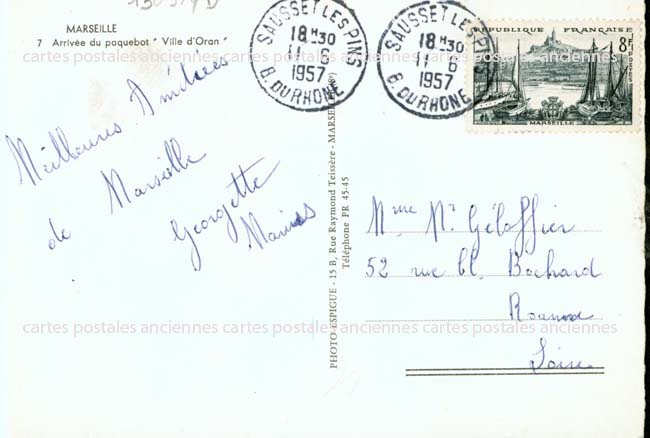 MARSEILLE
7 Arrivée du paquebot " Ville d'Oran "
Meilleures Amitiées
de Marseille
Georgette
Marius
PHOTO ESPIGUE - 15 B, Rue Raymond Teissère - MARSEILLE
Téléphone PR 45-45
SAUSSET LES PINS
18 H 30
11 - 6
1957
B. DU RHONE
SAUSSET LES PINS
18 H 30
11 - 6
1957
B. DU RHONE
REPUBLIQUE FRANÇAISE
8F
POSTES
MARSEILLE
Mme Mr
52 rue Cl. Bochard
Roanne
Loire
cartes postales anciennes cartes postales anciennes cartes postales anciennes
cartes postales anciennes cartes postales anciennes cartes postales anciennes